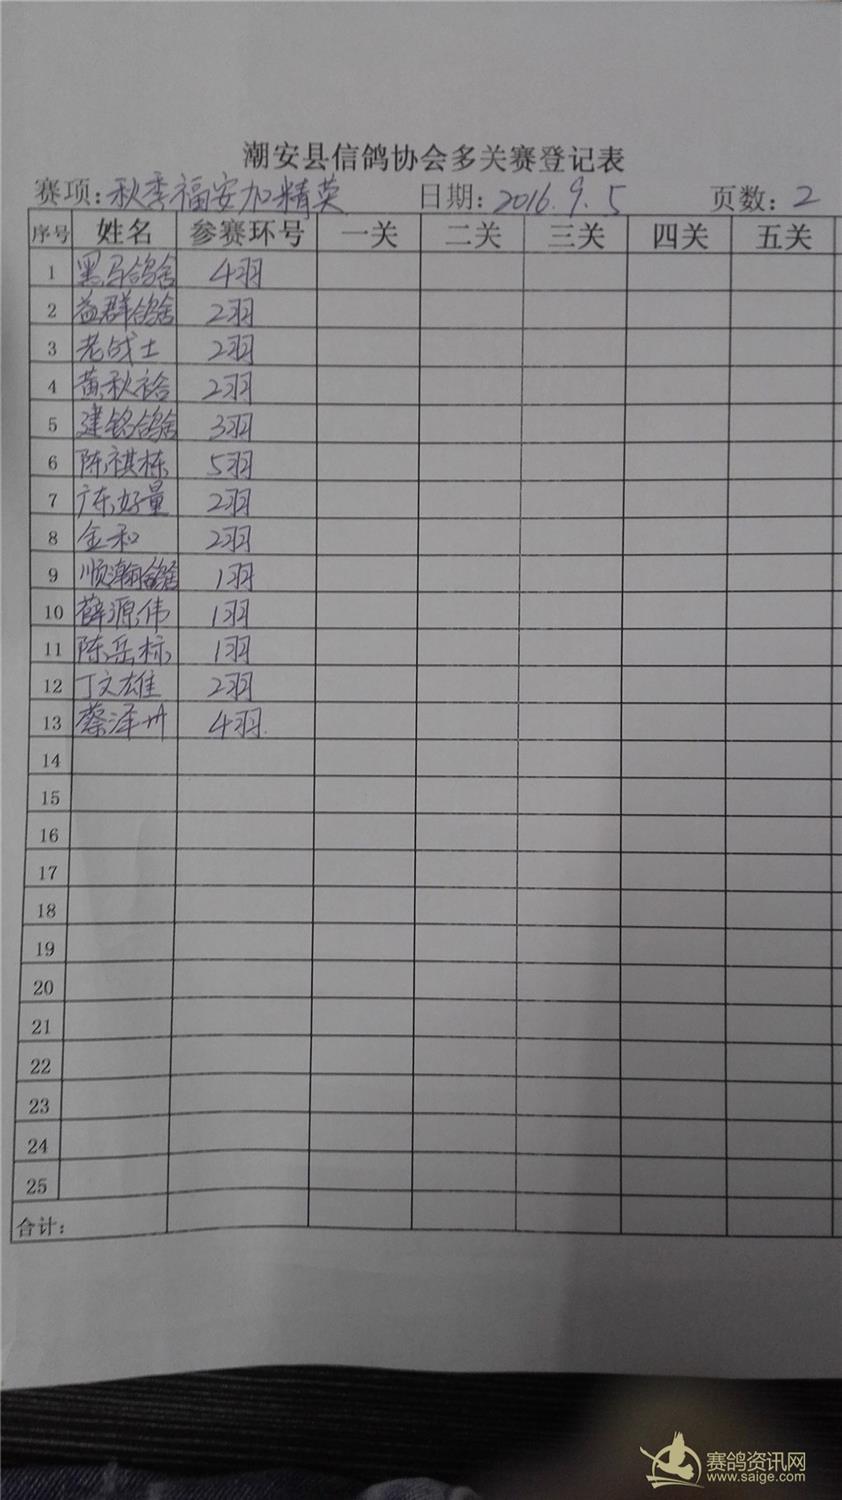 潮安县信鸽协会多关赛登记表
赛项: 秋季福安加精英 日期: 2016.9.5 页数: 2
序号 姓名 参赛环号 一关 二关 三关 四关 五关
1 黑马鸽舍 4羽
2 益群鸽舍 2羽
3 老战士 2羽
4 黄秋裕 2羽
5 建铭鸽舍 3羽
6 陈祺栋 5羽
7 广东好量 2羽
8 金和 2羽
9 顺瀚鸽舍 1羽
10 薛源伟 1羽
11 陈岳标 1羽
12 丁文雄 2羽
13 蔡泽州 4羽.
14
15
16
17
18
19
20
21
22
23
24
25
合计:
赛鸽资讯网
www.saige.com